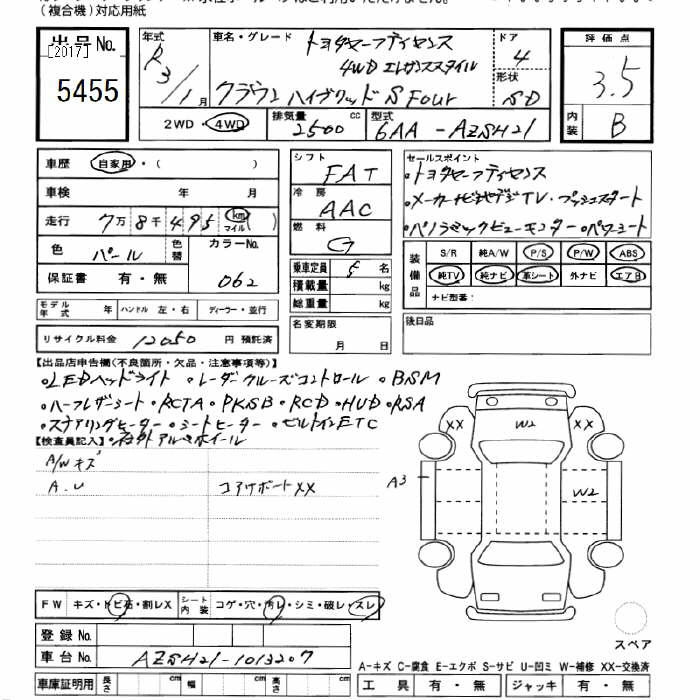 (複合機)対応用紙
出品No.
[2017]
5455
年式
R3/1月
車名・グレード
トヨタセーフティセンス
4WD エレガンススタイル
クラウンハイブリッド S Four
ドア
4
形状
SD
評価点
3.5
内装
B
2WD・4WD
排気量
2500 cc
型式
6AA-AZSH21
車歴 自家用・( )
車検 年 月
走行 7万8千495 km マイル ( )
色 パール 色替 カラーNo. 062
保証書 有・無
シフト
FAT
冷房
AAC
燃料
G
乗車定員 5 名
積載量 kg
総重量 kg
セールスポイント
・トヨタセーフティセンス
・メーカーナビ地デジTV・プッシュスタート
・パノラミックビューモニター・パワーシート
装備品
S/R 純A/W P/S P/W ABS
純TV 純ナビ 革シート 外ナビ エアB
ナビ型番:
モデル年式 年 ハンドル 左・右 ディーラー・並行
リサイクル料金 12050 円 預託済
名変期限
月 日
後日品
【出品店申告欄(不良箇所・欠品・注意事項等)】
・LEDヘッドライト ・レーダークルーズコントロール ・BSM
・ハーフレザーシート・RCTA・PKSB・RCD・HUD・RSA
・ステアリングヒーター・シートヒーター・ビルトインETC
【検査員記入】・社外アルミホイール
A/Wキズ
A.U
コアサポートXX
XX
W2
XX
A3
W2
FW キズ・トビ石・割レX
シート内装 コゲ・穴・汚レ・シミ・破レ・スレ
登録No.
車台No. AZSH21-1013207
スペア
A-キズ C-腐食 E-エクボ S-サビ U-凹ミ W-補修 XX-交換済
車庫証明用 長さ cm 幅 cm 高さ cm
工具 有・無 ジャッキ 有・無